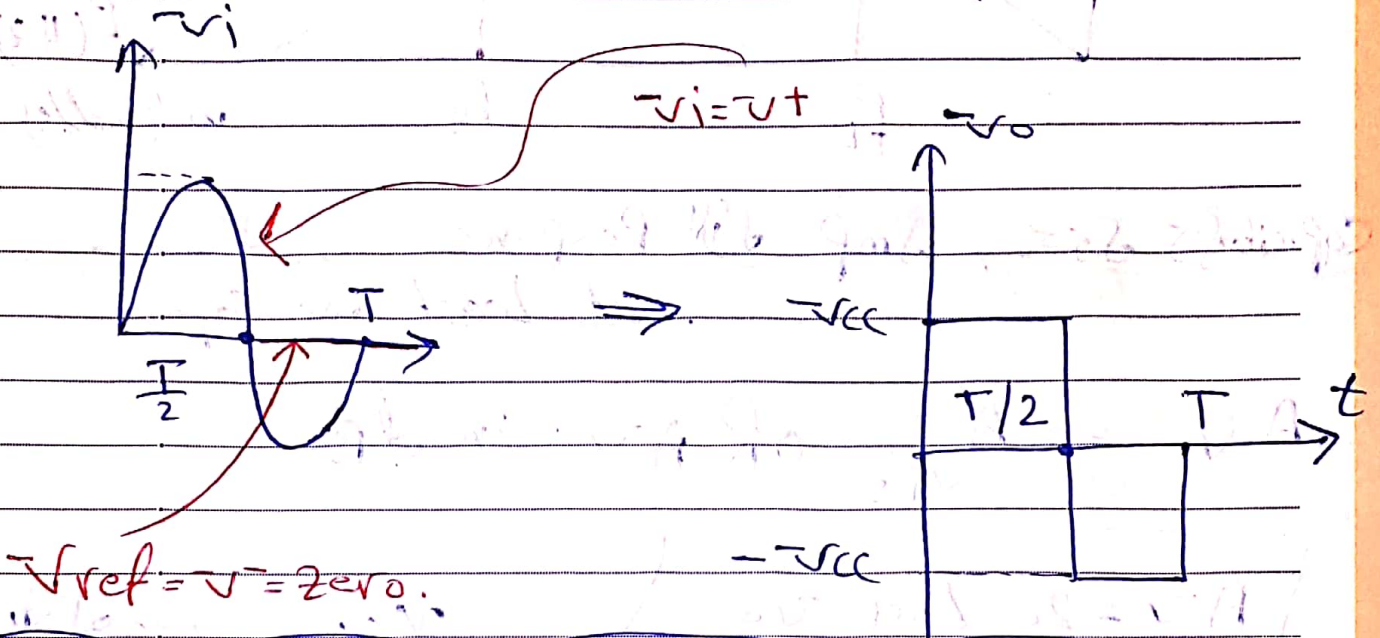 vi
vi = v+
vo
T
T/2
Vcc
T/2
T
t
-Vcc
Vref = v- = zero.